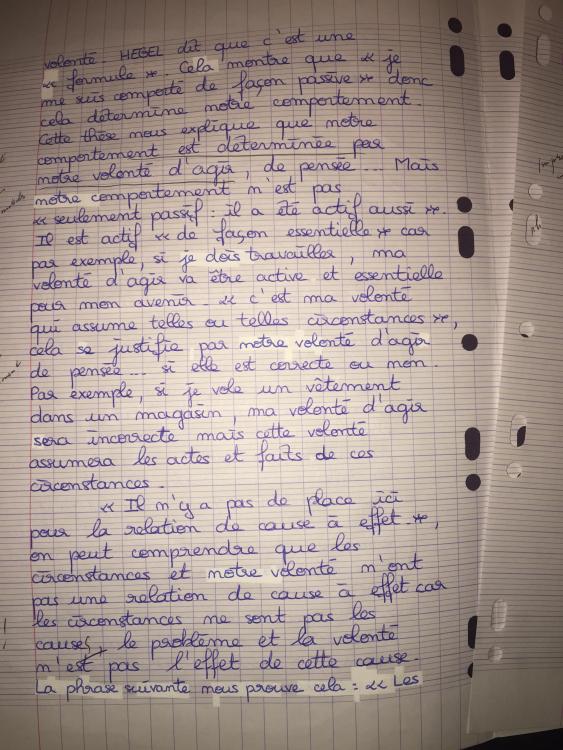 volonté. HEGEL dit que c'est une
« formule ». Cela montre que « je
me suis comporté de façon passive » donc
cela détermine notre comportement.
Cette thèse nous explique que notre
comportement est déterminée par
notre volonté d'agir, de pensée... Mais
notre comportement n'est pas
« seulement passif : il a été actif aussi ».
Il est actif « de façon essentielle » car
par exemple, si je dois travailler, ma
volonté d'agir va être active et essentielle
pour mon avenir. « c'est ma volonté
qui assume telles ou telles circonstances »,
cela se justifie par notre volonté d'agir
de pensée... si elle est correcte ou non.
Par exemple, si je vole un vêtement
dans un magasin, ma volonté d'agir
sera incorrecte mais cette volonté
assumera les actes et faits de ces
circonstances.
« Il n'y a pas de place ici
pour la relation de cause à effet »,
on peut comprendre que les
circonstances et notre volonté n'ont
pas une relation de cause à effet car
les circonstances ne sont pas les
causes, le problème et la volonté
n'est pas l'effet de cette cause.
La phrase suivante nous prouve cela : « Les